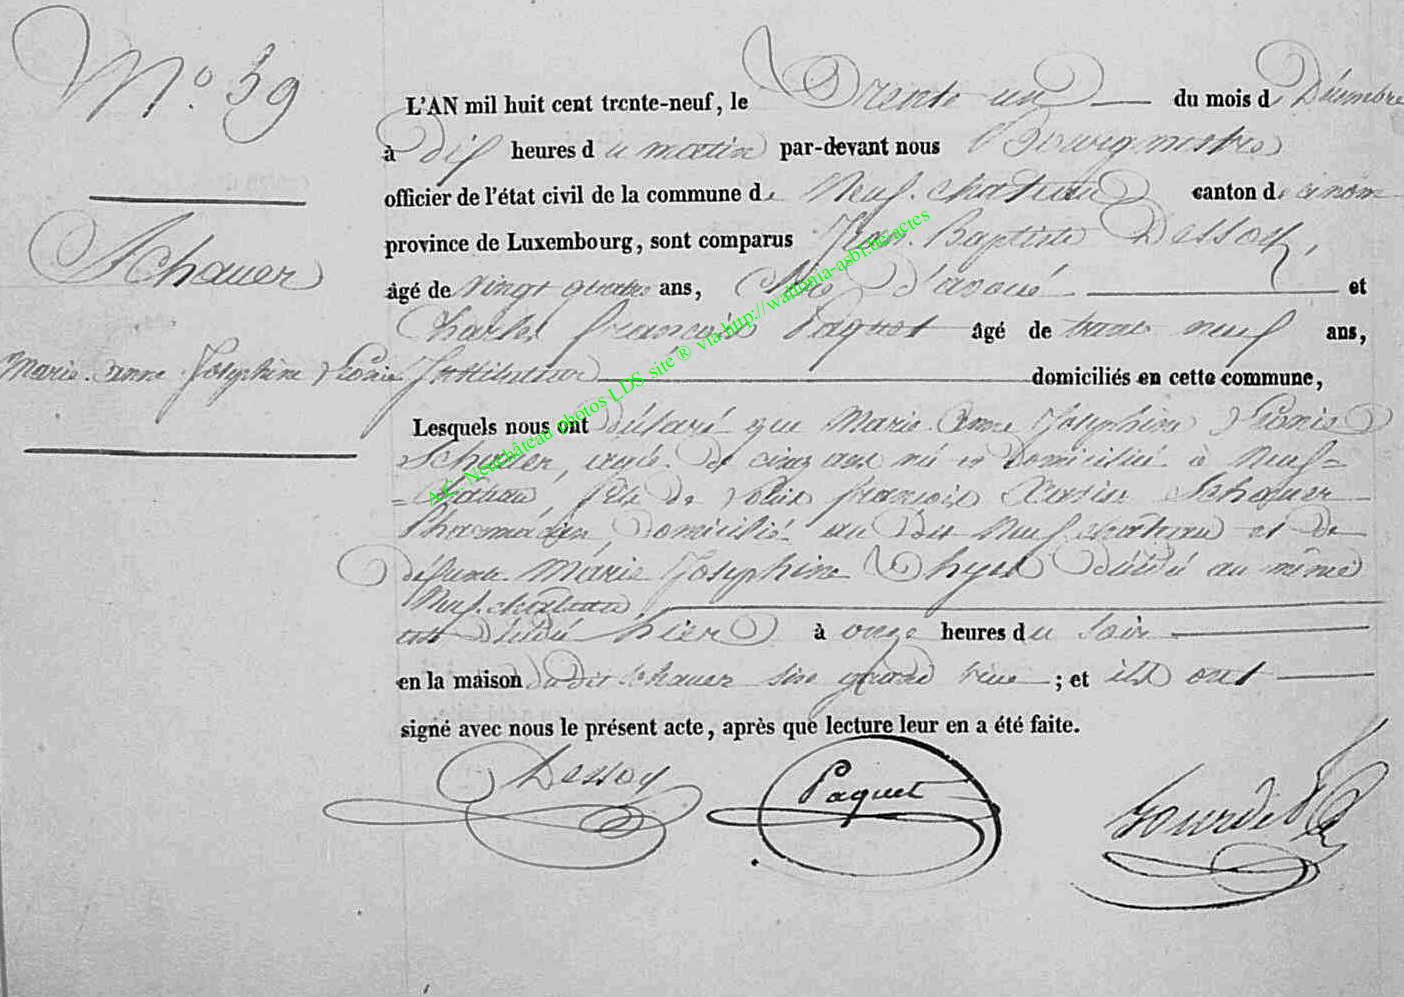 N.o 59
Schauer
Marie-anne-Josephine Léonie
L'AN mil huit cent trente-neuf, le Trente un du mois de Décembre
à dix heures du matin par-devant nous Bourgmestre
officier de l'état civil de la commune de Neuf-chateau canton de ce nom
province de Luxembourg, sont comparus Jean-Baptiste Dessoy,
âgé de vingt quatre ans, Clerc d'avoué et
Charles françois Paquet âgé de trente neuf ans,
Instituteur domiciliés en cette commune,
Lesquels nous ont déclaré que Marie-Anne Josephine Léonie
Schauer, agée de cinq ans née et domiciliée à Neuf-
-chateau, fille de françois Xavier Schauer
Pharmacien domicilié au dit Neuf-chateau et de
défunte Marie Josephine Thyes décédée au même
Neuf-chateau
est décédée hier à onze heures du soir
en la maison du dit Schauer sise grande rue ; et ils ont
signé avec nous le présent acte, après que lecture leur en a été faite.
Dessoy Paquet Bourdet
A.E. Neufchâteau photos LDS site ® via http://wallonia-asbl.be/actes